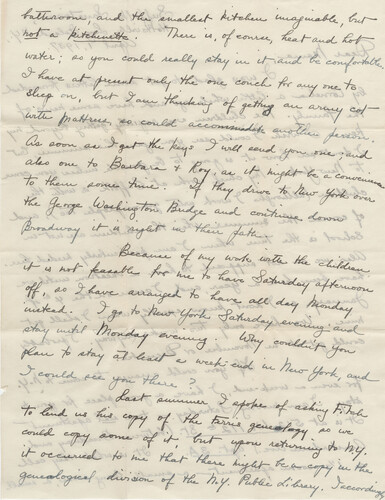 bathroom, and the smallest kitchen imaginable, but
not a kitchenette. There is, of course, heat and hot
water; so you could really stay in it and be comfortable.
I have at present only the one couch for any one to
sleep on, but I am thinking of getting an army cot
with mattress, so could accommodate another person.
As soon as I get the keys I will send you one; and
also one to Barbara & Roy, as it might be a convenience
to them some time. If they drive to New York over
the George Washington Bridge and continue down
Broadway it is right in their path.
Because of my work with the children
it is not feasible for me to have Saturday afternoon
off, so I have arranged to have all day Monday
instead. I go to New York Saturday evening and
stay until Monday evening. Why couldn't you
plan to stay at least a week-end in New York, and
I could see you there?
Last summer I spoke of asking
to lend us his copy of the Farris genealogy so we
could copy some of it, but upon returning to N.Y.
it occurred to me that there might be a copy in the
genealogical division of the N.Y. Public Library. I accordingly